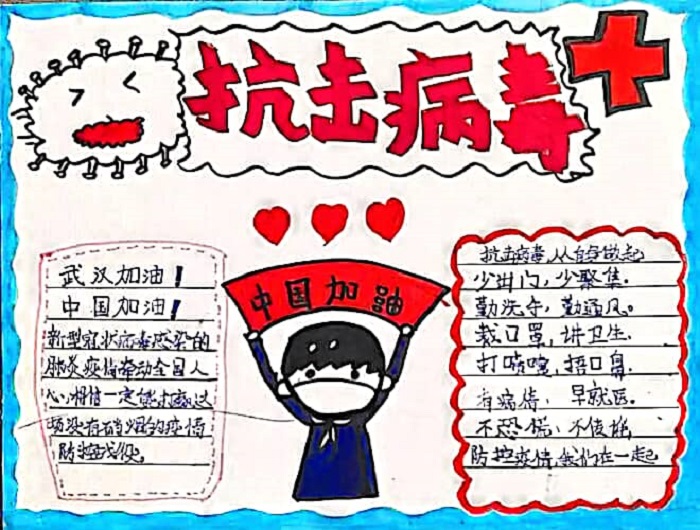 抗击病毒
中国加油
武汉加油！
中国加油！
新型冠状病毒感染的
肺炎疫情牵动全国人
心,相信一定能打赢这
场没有硝烟的疫情
防控战役。
抗击病毒,从自身做起
少出门,少聚集.
勤洗手,勤通风。
戴口罩,讲卫生.
打喷嚏,捂口鼻.
有病情,早就医.
不恐慌,不传谣,
防控疫情,我们在一起